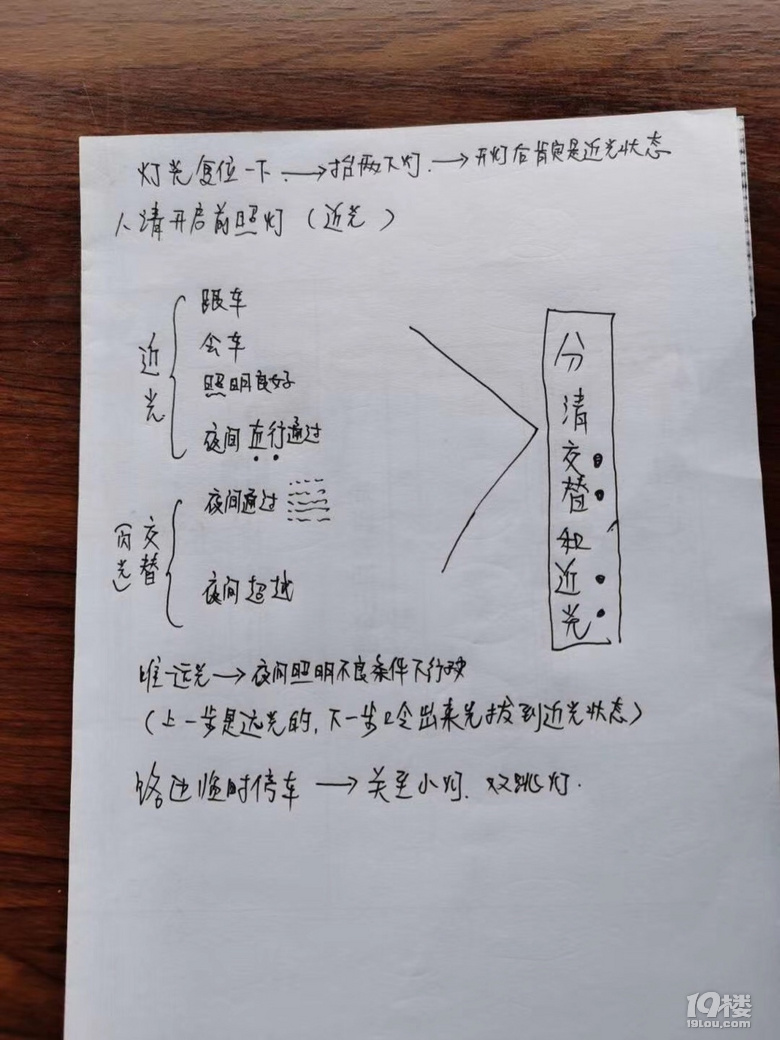 灯光复位一下. → 抬两下灯. → 开灯后肯定是近光状态
1、请开启前照灯 (近光)
近光
跟车
会车
照明良好
夜间 直行通过
交替
(闪光)
夜间通过
夜间超越
分清交替和近光
唯一远光 → 夜间照明不良条件下行驶
(上一步是远光的, 下一步口令出来先拨到近光状态)
路边临时停车 → 关至小灯. 双跳灯.
19楼
19lou.com